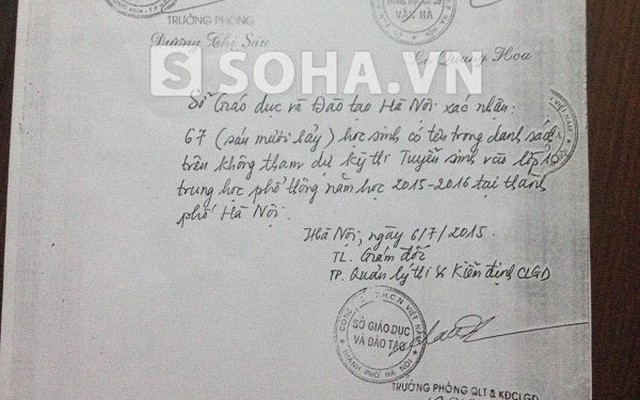 TRƯỞNG PHÒNG
VÂN HÀ
Dương Thị Sáu
Quang Hoa
SOHA.VN
Sở Giáo dục và Đào tạo Hà Nội xác nhận:
67 (sáu mươi bảy) học sinh có tên trong danh sách
trên không tham dự kỳ thi Tuyển sinh vào lớp 10
trung học phổ thông năm học 2015-2016 tại thành
phố Hà Nội.
Hà Nội, ngày 6/7/2015.
TL. Giám đốc
TP. Quản lý thi & Kiểm định CLGD
SỞ GIÁO DỤC
VÀ ĐÀO TẠO
THÀNH PHỐ HÀ NỘI
TRƯỞNG PHÒNG QLT & KĐCLGD